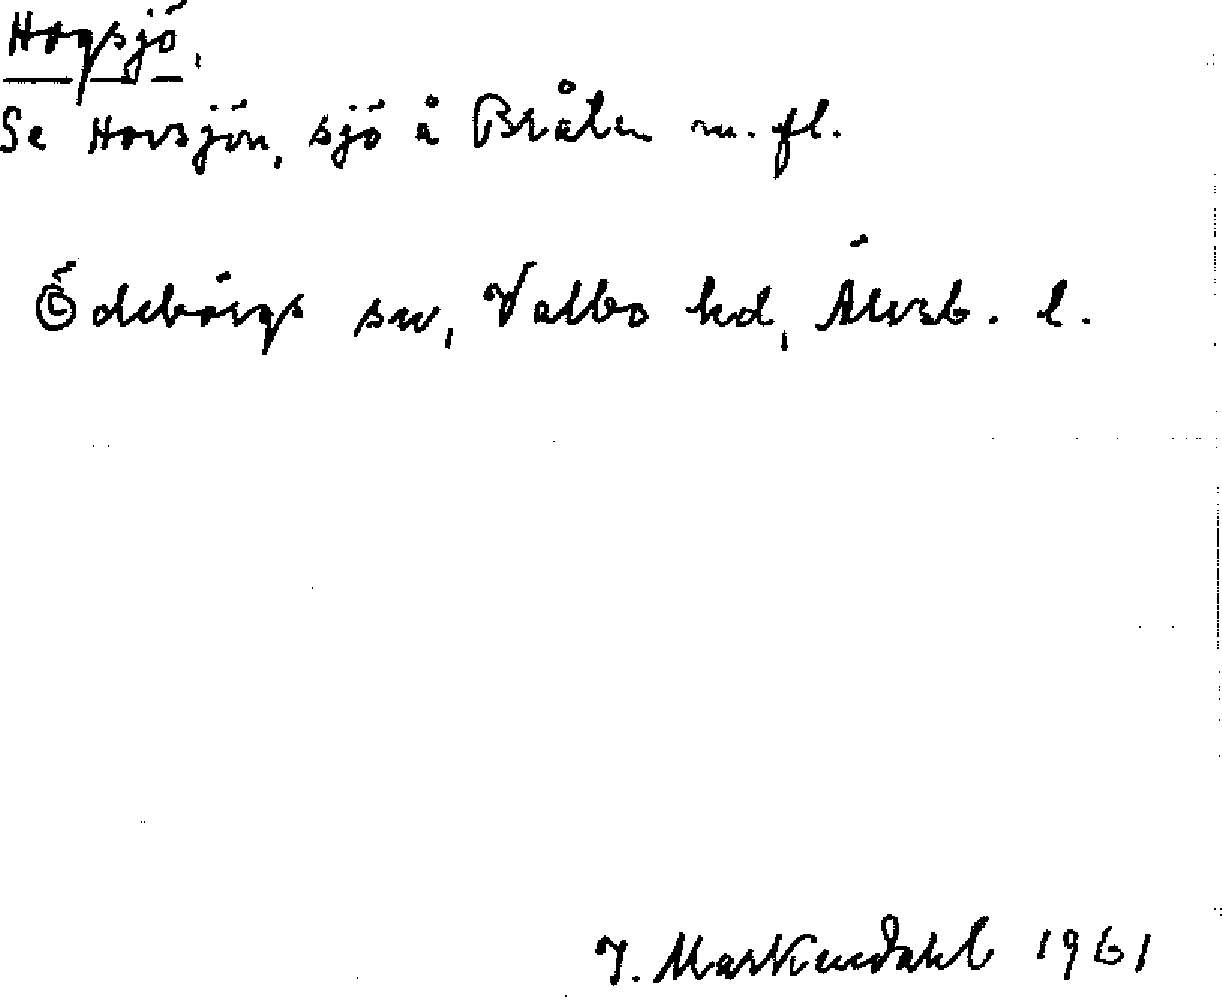 Hogsjö,
Se Hovsjön, sjö å Bråten m.fl.
Ödeborgs sn, Valbo hd, Älvsb. l.
1961